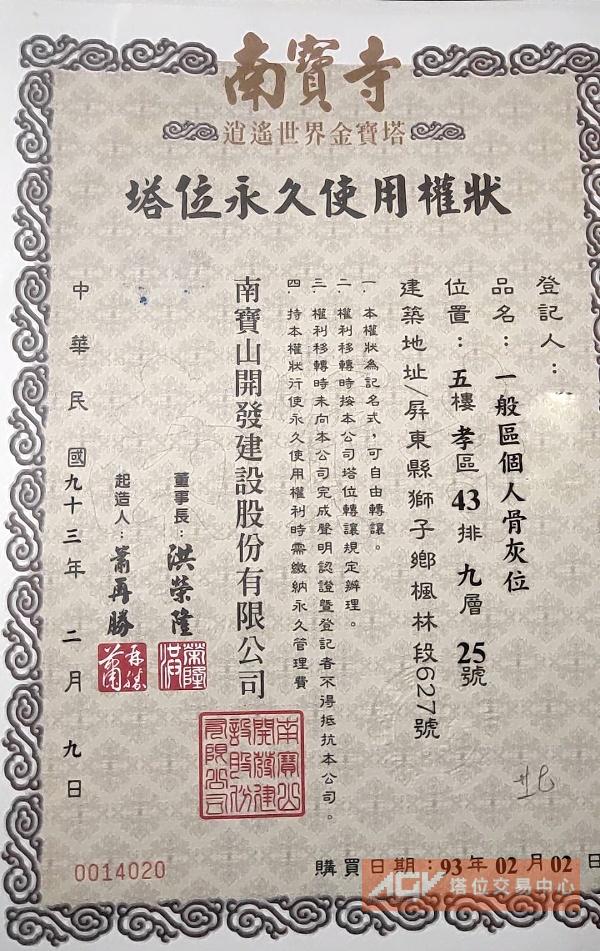 南寶寺
逍遙世界金寶塔
塔位永久使用權狀
登記人：
品名：一般區個人骨灰位
位置：五樓孝區43排九層25號
建築地址/屏東縣獅子鄉楓林段627號
一、本權狀為記名式，可自由轉讓。
二、權利移轉時按本公司塔位轉讓規定辦理。
三、權利移轉時未向本公司完成聲明認證暨登記者不得抵抗本公司。
四、持本權狀行使永久使用權利時需繳納永久管理費
南寶山開發建設股份有限公司
南寶山開發建設股份有限公司
董事長：洪榮隆
洪榮隆
起造人：蕭再勝
蕭再勝
中華民國九十三年二月九日
北
0014020
購買日期：93年02月02日
AGV 塔位交易中心